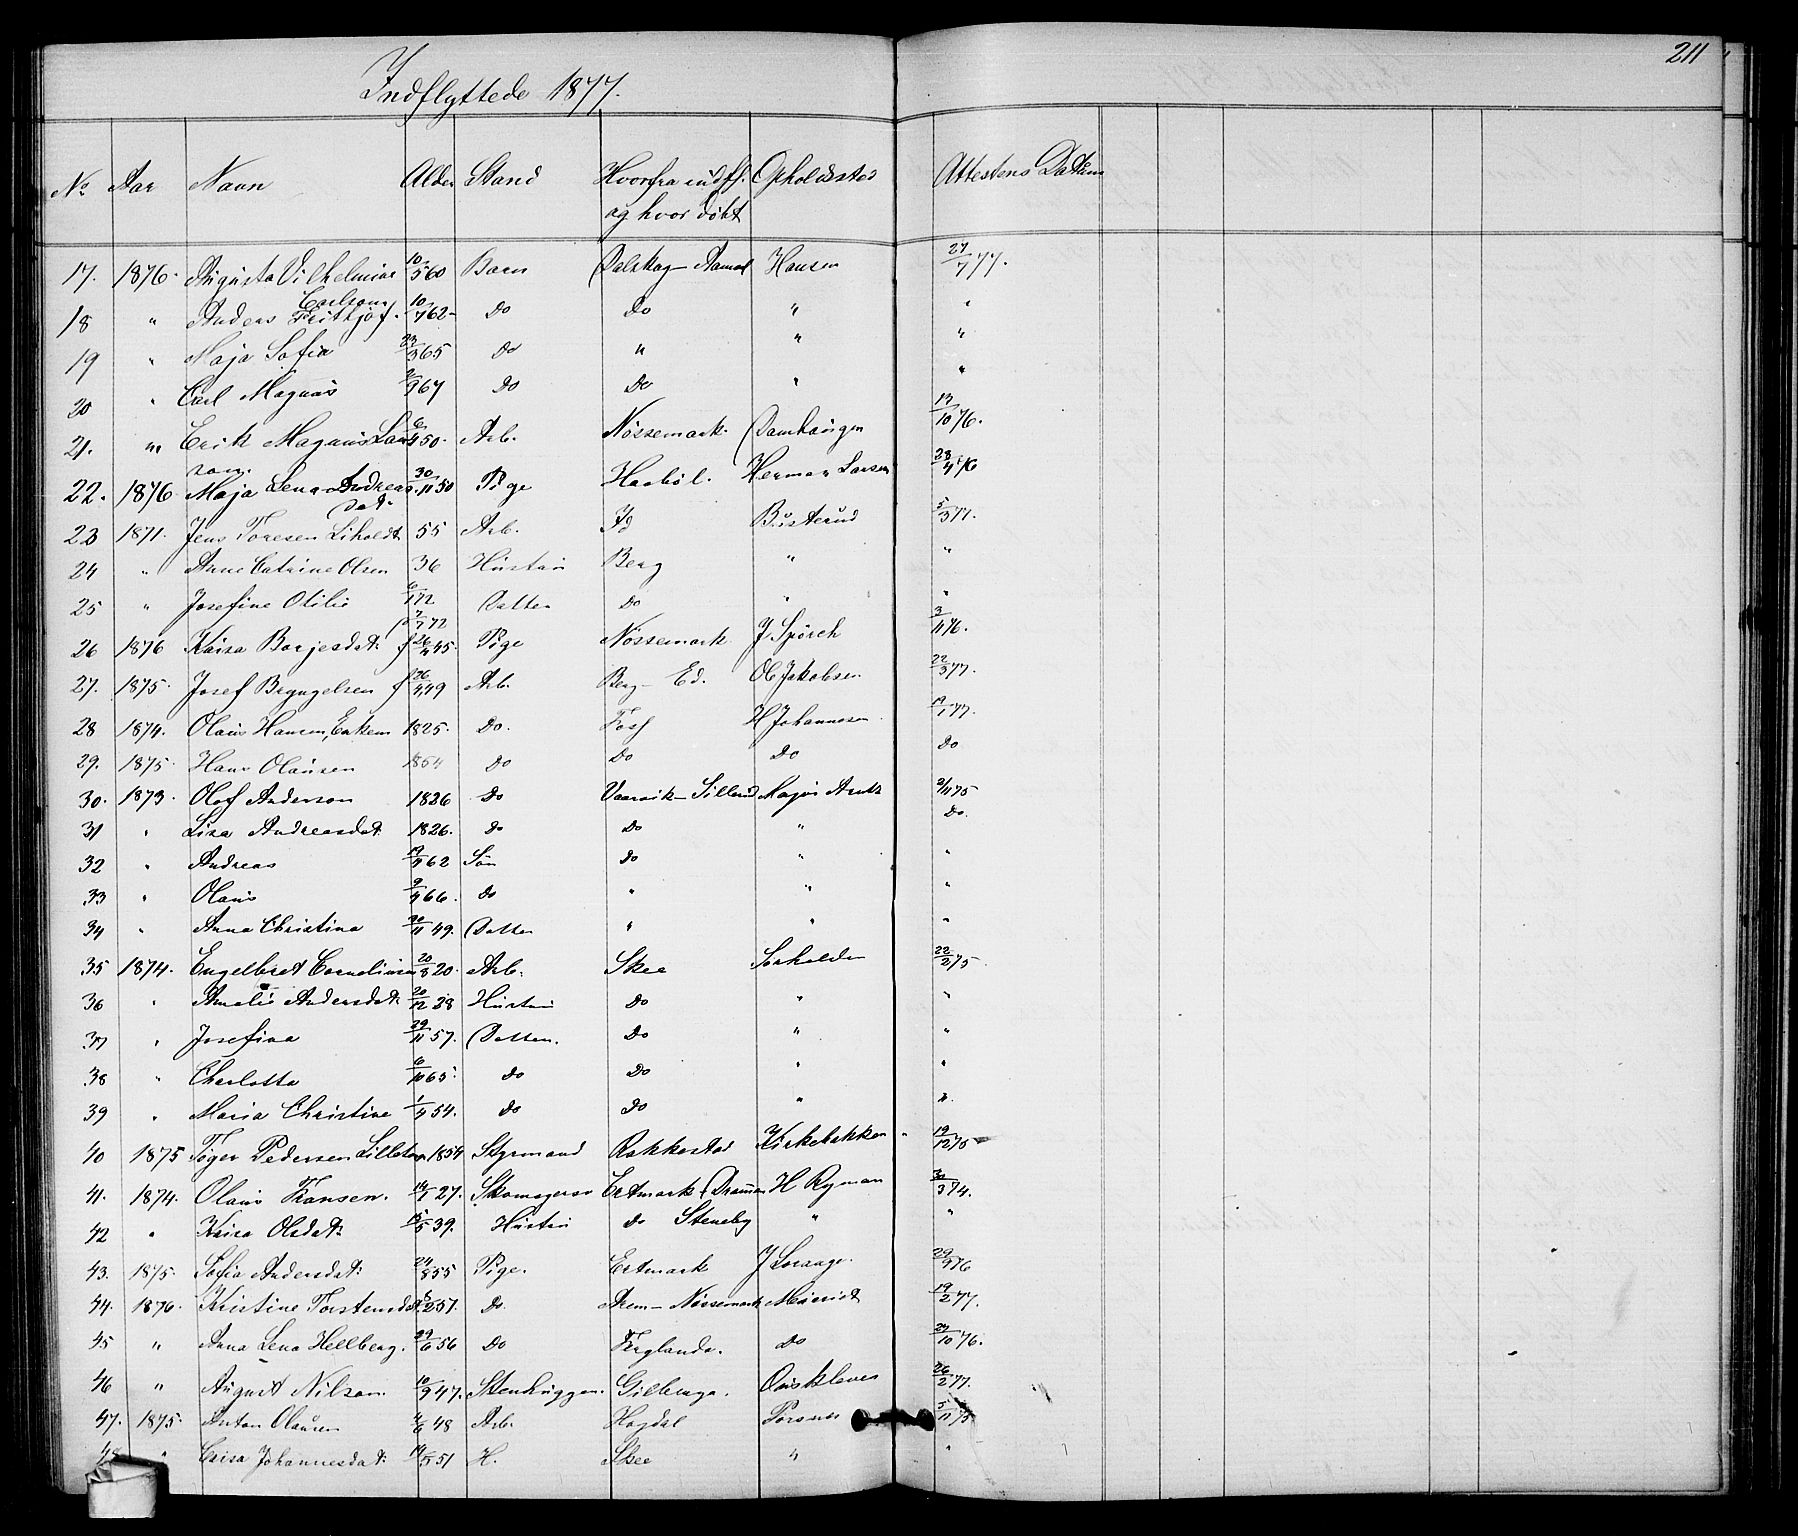 211
Indflyttede 1877.
No Aar Navn Alder Stand Hvorfra indfl. og hvor døbt Opholdssted Attestens Datum
17. 1876. Augusta Vilhelmine Carlson 10/5 60 Barn Dalskog - Aamol Hansen 27/7 77.
18 " Anders Fritjof. 10/7 62 - Do Do " "
19 " Maja Sofia 23/3 65 Do " " "
20 " Carl Magnus 2/9 67 Do Do " "
21. " Erik Magnus Larson. 6/4 50. Arb. Nössemark. Damhaugen 13/10 76.
22. 1876. Maja Lena Andreasdat. 30/11 50 Pige Haabøl. Herman Larsen 28/4 76
23 1871. Jens Toresen Liholdt 55 Arb. Id Büsterud 5/3 77.
24 " Anne Catrine Olsen 36 Hustru Berg " "
25 " Josefine Otilie 6/1 72 Datter Do " "
7/7 72
26 1876 Kaisa Borjesdat: f 26/4 45. Pige Nössemark J Spörch 3/11 76.
27. 1875. Josef Bryngelsen f 26/4 49 Arb. Berg - Ed. Ol Jakobsen 22/3 77.
28 1874. Olaus Hansen, Enkem 1825. Do. Foss H Johannesen 19/1 77.
29. 1875. Hans Olausen 1854 Do Do Do Do
30. 1873. Olof Anderson 1826 Do Vaarvik - Sillerud Major 2/11 75
31 " Lisa Andreasdat. 1826. Do Do " Do.
32 " Andreas 19/9 62 Søn Do " "
33 " Olaus 9/4 66. Do " " "
34 " Anna Christina 20/11 49. Datter " " "
35 1874. Engelbret Corneliusen 20/3 20. Arb. Skee 22/2 75.
36 " Amalie Andersdat: 20/12 28 Hustru Do " "
37 " Josefina 29/11 57. Datter. Do " "
38 " Charlotta 6/10 65. Do Do " "
39 " Maria Christine 1/4 54. Do Do " "
40 1875 Töger Pedersen 1854 Styrmand Rakkestad Kirkebakken 19/12 75
41. 1874. Olaus Fransen. 14/1 27. Skomager Ertmark H Ryman 31/3 74.
42 " Kaisa Olsdat: 15/5 39. Hustru Do Steneby " "
43. 1875. Sofia Andersdat: 24/8 55 Pige. Ertmark J Lorange. 29/9 76
44. 1876. Kristine Torstensdat 5/2 57. Do. Arem - Nössemark 19/2 77.
45 " Anna Lena Hellberg. 29/6 56 Do Ferglanda. Do 27/10 76.
46 " August Nilson. 10/9 47. Stenhugger. Gilberga. Ousklever 26/2 77.
47. 1875. Anton Olausen 4/6 48 Arb. Hogdal Porsnes 5/11 75
48 " Caisa Johannesdat: 14/5 51 H. Skee " "